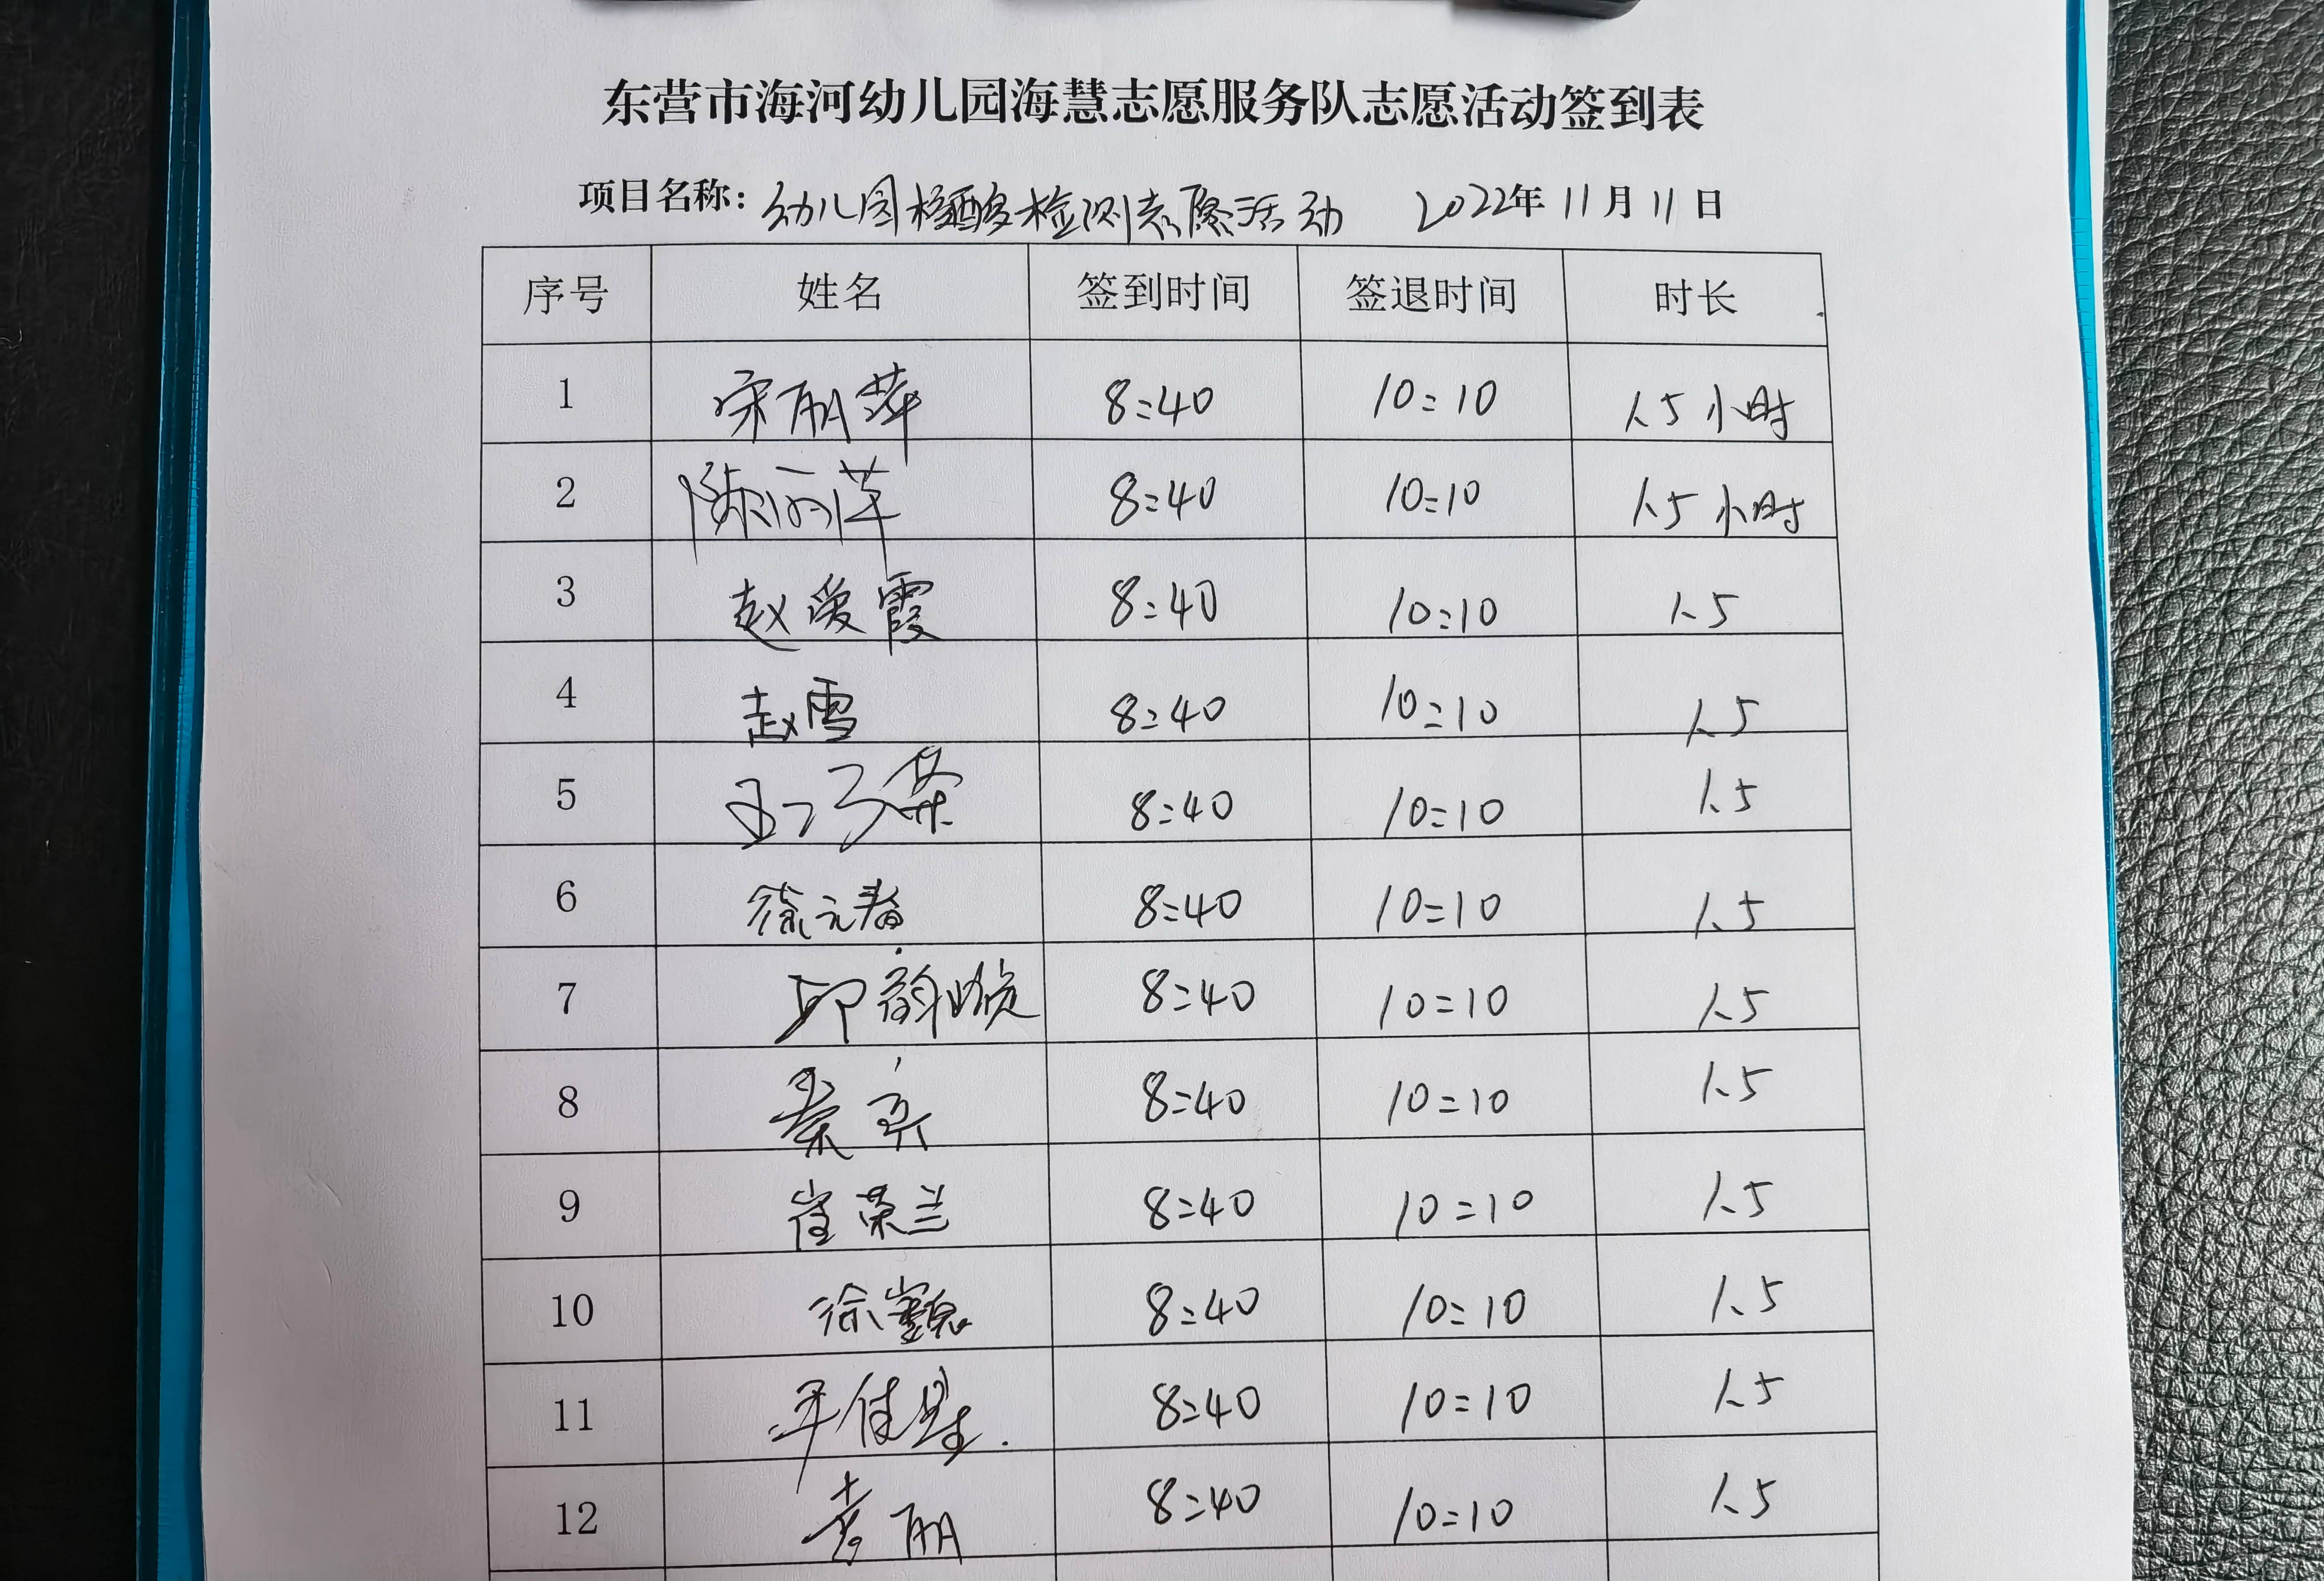 东营市海河幼儿园海慧志愿服务队志愿活动签到表
项目名称：幼儿园核酸检测志愿活动 2022年11月11日
序号 姓名 签到时间 签退时间 时长
1 宋丽萍 8:40 10:10 1.5小时
2 陈丽萍 8:40 10:10 1.5小时
3 赵爱霞 8:40 10:10 1.5
4 赵雪 8:40 10:10 1.5
5 8:40 10:10 1.5
6 徐元春 8:40 10:10 1.5
7 邱韵 8:40 10:10 1.5
8 秦 8:40 10:10 1.5
9 崔荣兰 8:40 10:10 1.5
10 徐巍 8:40 10:10 1.5
11 8:40 10:10 1.5
12 袁丽 8:40 10:10 1.5